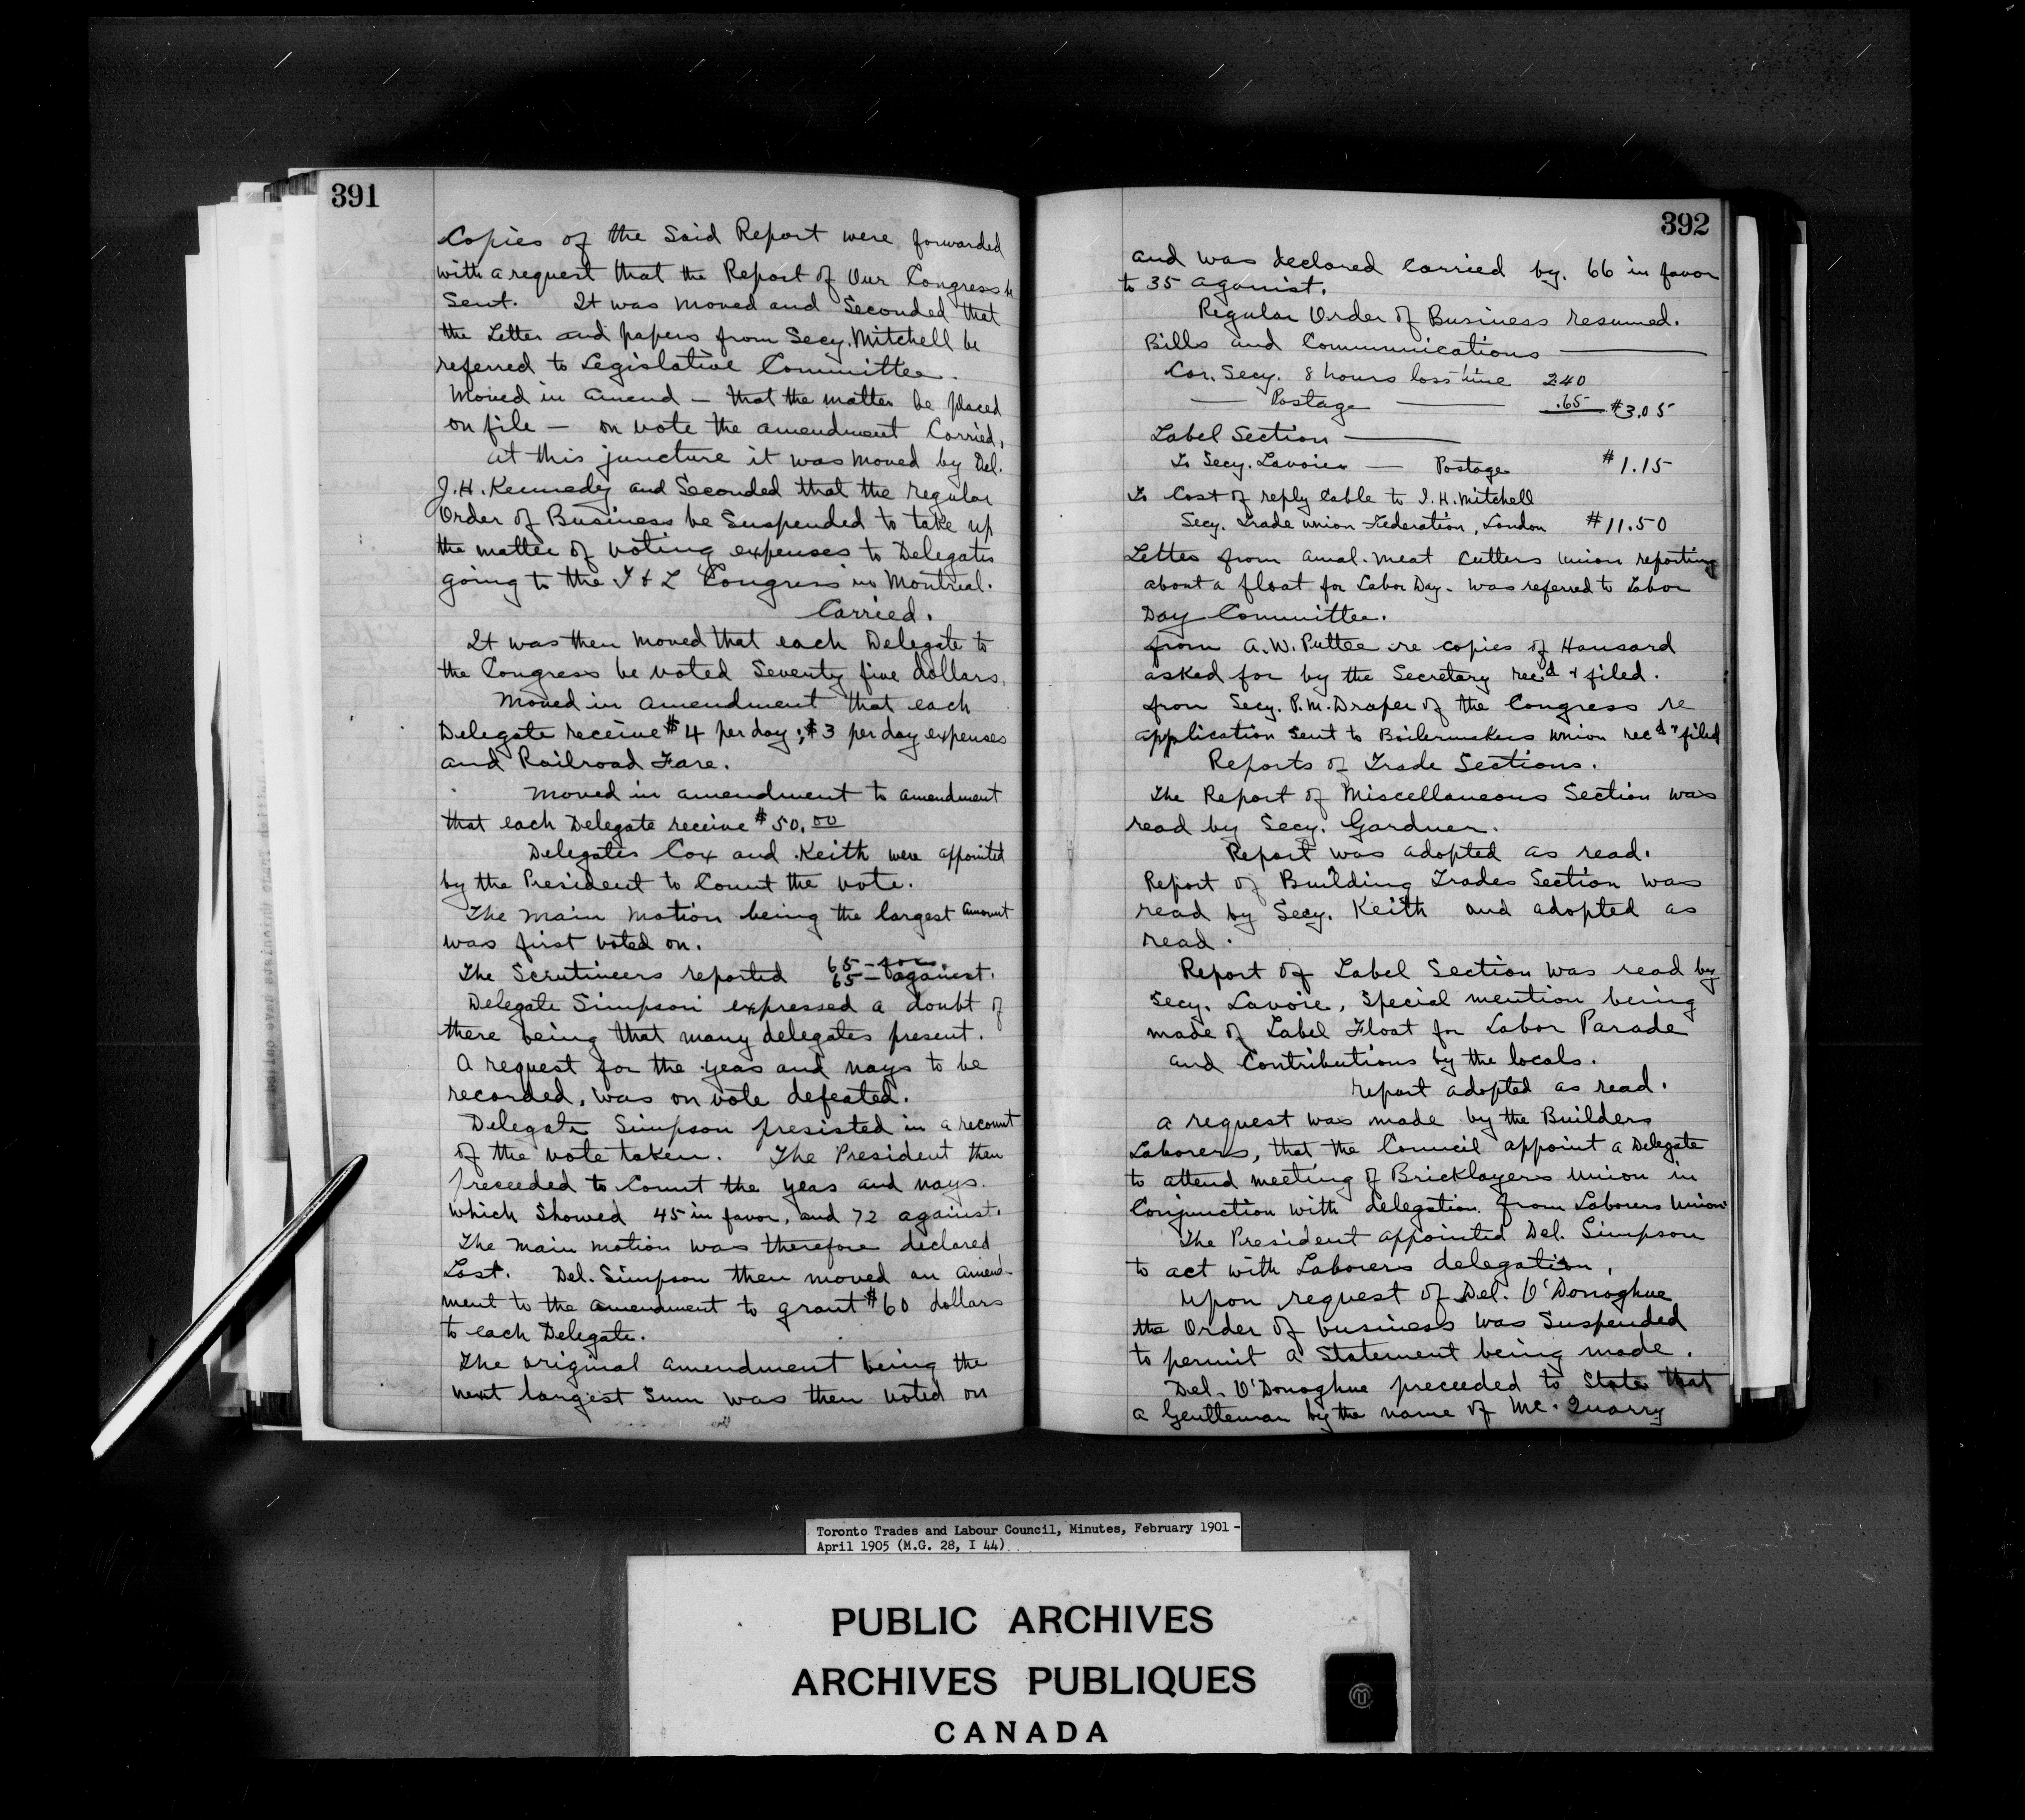 391
Copies of the Said Report were forwarded
with a request that the Report of Our Congress be
Sent. It was moved and Seconded that
the Letter and papers from Secy. Mitchell be
referred to Legislative Committee.
Moved in Amend — that the matter be placed
on file — on vote the amendment Carried.
At this juncture it was moved by Del.
J.H. Kennedy and Seconded that the regular
Order of Business be Suspended to take up
the matter of voting expenses to Delegates
going to the T & L Congress in Montreal.
Carried.
It was then moved that each Delegate to
the Congress be voted Seventy five dollars.
Moved in amendment that each
Delegate receive $4 per day; $3 per day expenses
and Railroad Fare.
Moved in amendment to amendment
that each Delegate receive $50.00
Delegates Cox and Keith were appointed
by the President to Count the vote.
The main motion being the largest amount
was first voted on.
The Scrutineers reported 65 — for.
65 — against.
Delegate Simpson expressed a doubt of
there being that many delegates present.
A request for the yeas and nays to be
recorded, was on vote defeated.
Delegate Simpson presisted in a recount
of the vote taken. The President then
preceeded to Count the yeas and nays.
which Showed 45 in favor, and 72 against.
The main motion was therefore declared
Lost. Del. Simpson then moved an amend-
ment to the amendment to grant $60 dollars
to each Delegate.
The original amendment being the
next largest Sum was then voted on
392
and was declared Carried by. 66 in favor
to 35 aganist.
Regular Order of Business resumed.
Bills and Communications —
Cor. Secy. 8 hours loss time 240
— Postage — .65 $3.05
Label Section —
To Secy. Lavoie — Postage $1.15
To Cost of reply Cable to I.H. Mitchell
Secy. Trade Union Federation, London $11.50
Letter from Amal. Meat Cutters Union reporting
about a float for Labor Day. was referred to Labor
Day Committee.
from A.W. Puttee re copies of Hansard
asked for by the Secretary rec'd & filed.
from Secy. P.M. Draper of the Congress re
application Sent to Boilermakers Union rec'd & filed
Reports of Trade Sections.
The Report of Miscellaneous Section was
read by Secy. Gardner.
Report was adopted as read.
Report of Building Trades Section was
read by Secy. Keith and adopted as
read.
Report of Label Section was read by
Secy. Lavoie, Special mention being
made of Label Float for Labor Parade
and Contributions by the locals.
report adopted as read.
A request was made by the Builders
Laborers, that the Council appoint a Delegate
to attend meeting of Bricklayers Union in
Conjunction with delegation from Laborers Union
The President appointed Del. Simpson
to act with Laborers delegation.
Upon request of Del. O'Donoghue
the Order of business was Suspended
to permit a Statement being made.
Del. O'Donoghue preceeded to State that
a Gentleman by the name of Mc. Quarry
Toronto Trades and Labour Council, Minutes, February 1901 -
April 1905 (M.G. 28, I 44)
PUBLIC ARCHIVES
ARCHIVES PUBLIQUES
CANADA